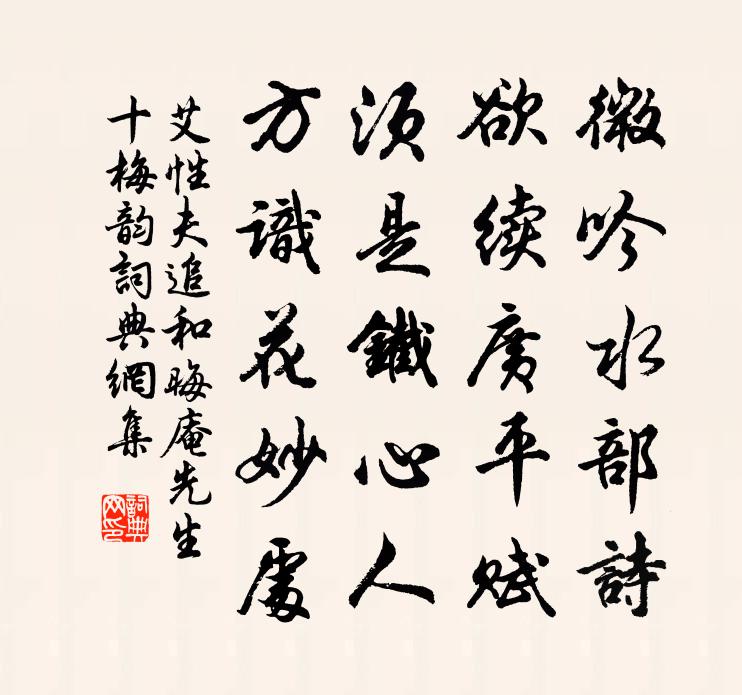 微吟水部詩
欲续廣平赋
須是鐵心人
方識花妙處
艾性夫追和晦庵先生
十梅韵詞典網集
詞典网印